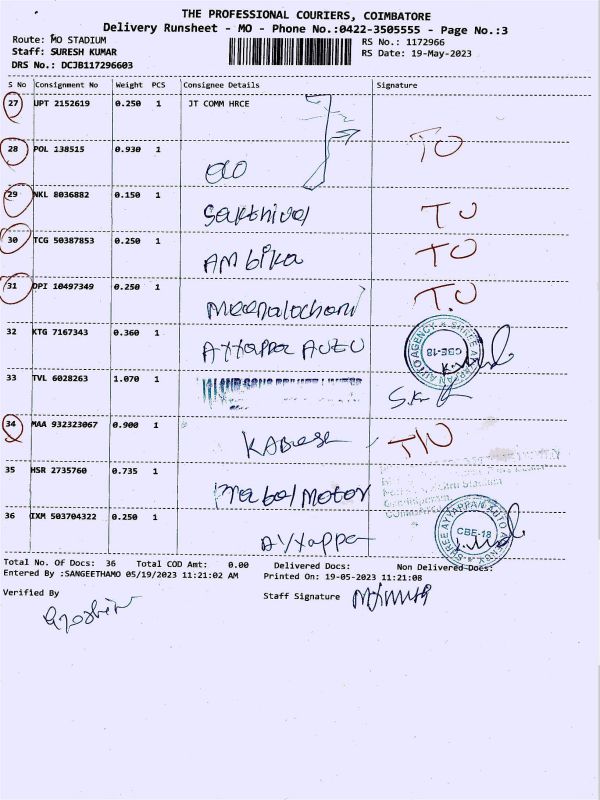 THE PROFESSIONAL COURIERS, COIMBATORE
Delivery Runsheet - MO - Phone No.:0422-3505555 - Page No.:3
Route: MO STADIUM RS No.: 1172966
Staff: SURESH KUMAR RS Date: 19-May-2023
DRS No.: DCJB117296603
S No Consignment No Weight PCS Consignee Details Signature
27 UPT 2152619 0.250 1 JT COMM HRCE
28 POL 138515 0.930 1 TO
29 NKL 8036882 0.150 1 Sakthivel TO
30 TCG 50387853 0.250 1 AMbika TO
31 DPI 10497349 0.250 1 T.O
32 KTG 7167343 0.360 1 AYYAPPA AUTO SHREE AYYAPPAN AUTO AGENCY CBE-18
33 TVL 6028263 1.070 1
34 MAA 932323067 0.900 1 T/O
35 HSR 2735760 0.735 1 Motor
36 IXM 503704322 0.250 1 AYYappa SHREE AYYAPPAN AUTO AGENCY CBE-18
Total No. Of Docs: 36 Total COD Amt: 0.00 Delivered Docs: Non Delivered Docs:
Entered By :SANGEETHAMO 05/19/2023 11:21:02 AM Printed On: 19-05-2023 11:21:08
Verified By Staff Signature